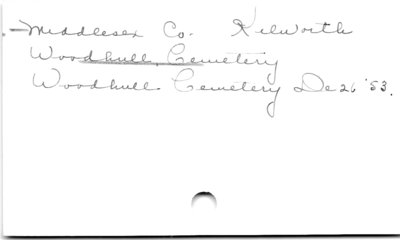 Middlesex Co. Kilworth
Woodhull, Cemetery
Woodhull Cemetery De 26 '53.